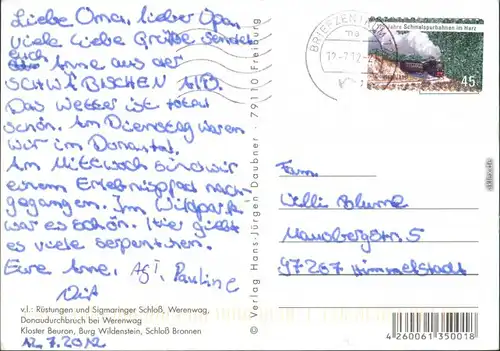 Liebe Oma, lieber Opa,
viele liebe Grüße sendet
euch Anne aus der
SCHWÄBISCHEN ALB.
Das Wetter ist total
schön. Am Dienstag waren
wir im Donautal.
Am Mittwoch sind wir
einem Erlebnispfad nach
gegangen. Im Wildpark
war es schön. Hier giebt
es viele serpentinen.
Eure Anne, Pauline
v.l.: Rüstungen und Sigmaringer Schloß, Werenwag,
Donaudurchbrüch bei Werenwag
Kloster Beuron, Burg Wildenstein, Schloß Bronnen
12.7.2012
© Verlag Hans-Jürgen Daubner · 79110 Freiburg
BRIEFZENTRUM
Jahre Schmalspurbahnen im Harz
45
Fam.
Willi Blume
Mausbergstr. 5
97267 Himmelstadt
4 260061 350018